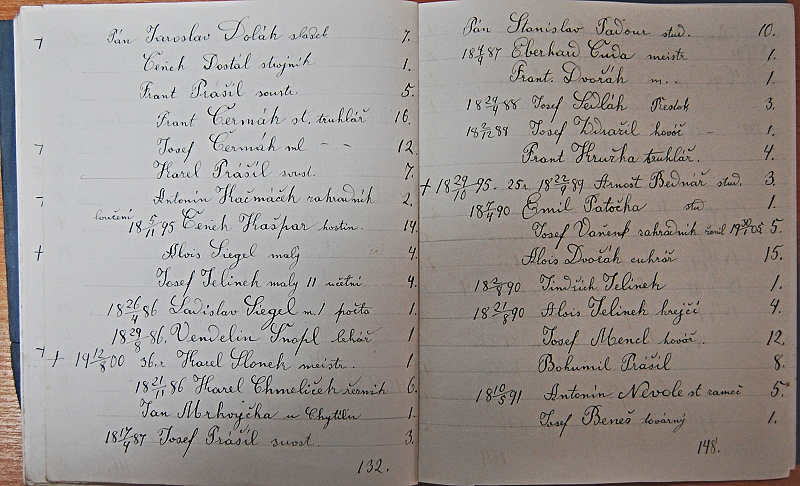 Pán Jaroslav Dolák sladek 7.
Čeněk Dostál strojník 1.
Frant Prášil soustr. 5
Frant Čermák st. truhlář 16.
Josef Čermák ml - - 12
Karel Prášil soust. 7.
Antonín Hačmáček zahradník 2.
loučení
18 5/11 95 Čeněk Kašpar hostin. 14.
Alois Siegel malý 4.
Josef Jelinek malý II učetní 4.
18 26/4 86 Ladislav Siegel ml pošta 1.
18 29/8 86. Vendelin Šnopl lékář 1
+ 19 12/8 00 36.r. Karel Slonek meistr. 1
18 21/11 86 Karel Chmelíček řezník 6.
Jan Mrkvička u Chytilů 1.
18 17/4 87 Josef Prášil soust. 3.
132.
Pán Stanislav Paďour stud. 10.
18 7/4 87 Eberhard Čuda meistr 1.
Frant. Dvořák m.. 1.
18 24/4 88 Josef Sedlák 3.
18 2/12 88 Josef Zdražil kovář - 1.
Frant Hruźka truhlář. 4.
+ 18 29/10 95. 25r. 18 22/9 89 Arnošt Bednář stud. 3.
18 7/4 90 Emil Patočka stud 1.
Josef Vaňený zahradník 19 30/1 05 5.
Alois Dvořák cukrář 15.
18 2/8 90 Jindřich Jelínek 1.
18 21/8 90 Alois Jelinek krejčí 4.
Josef Mencl kovář. 12.
Bohumil Prášil 8.
18 10/5 91 Antonín Nevole st zameč 5.
Josef Beneš továrný 1.
148.